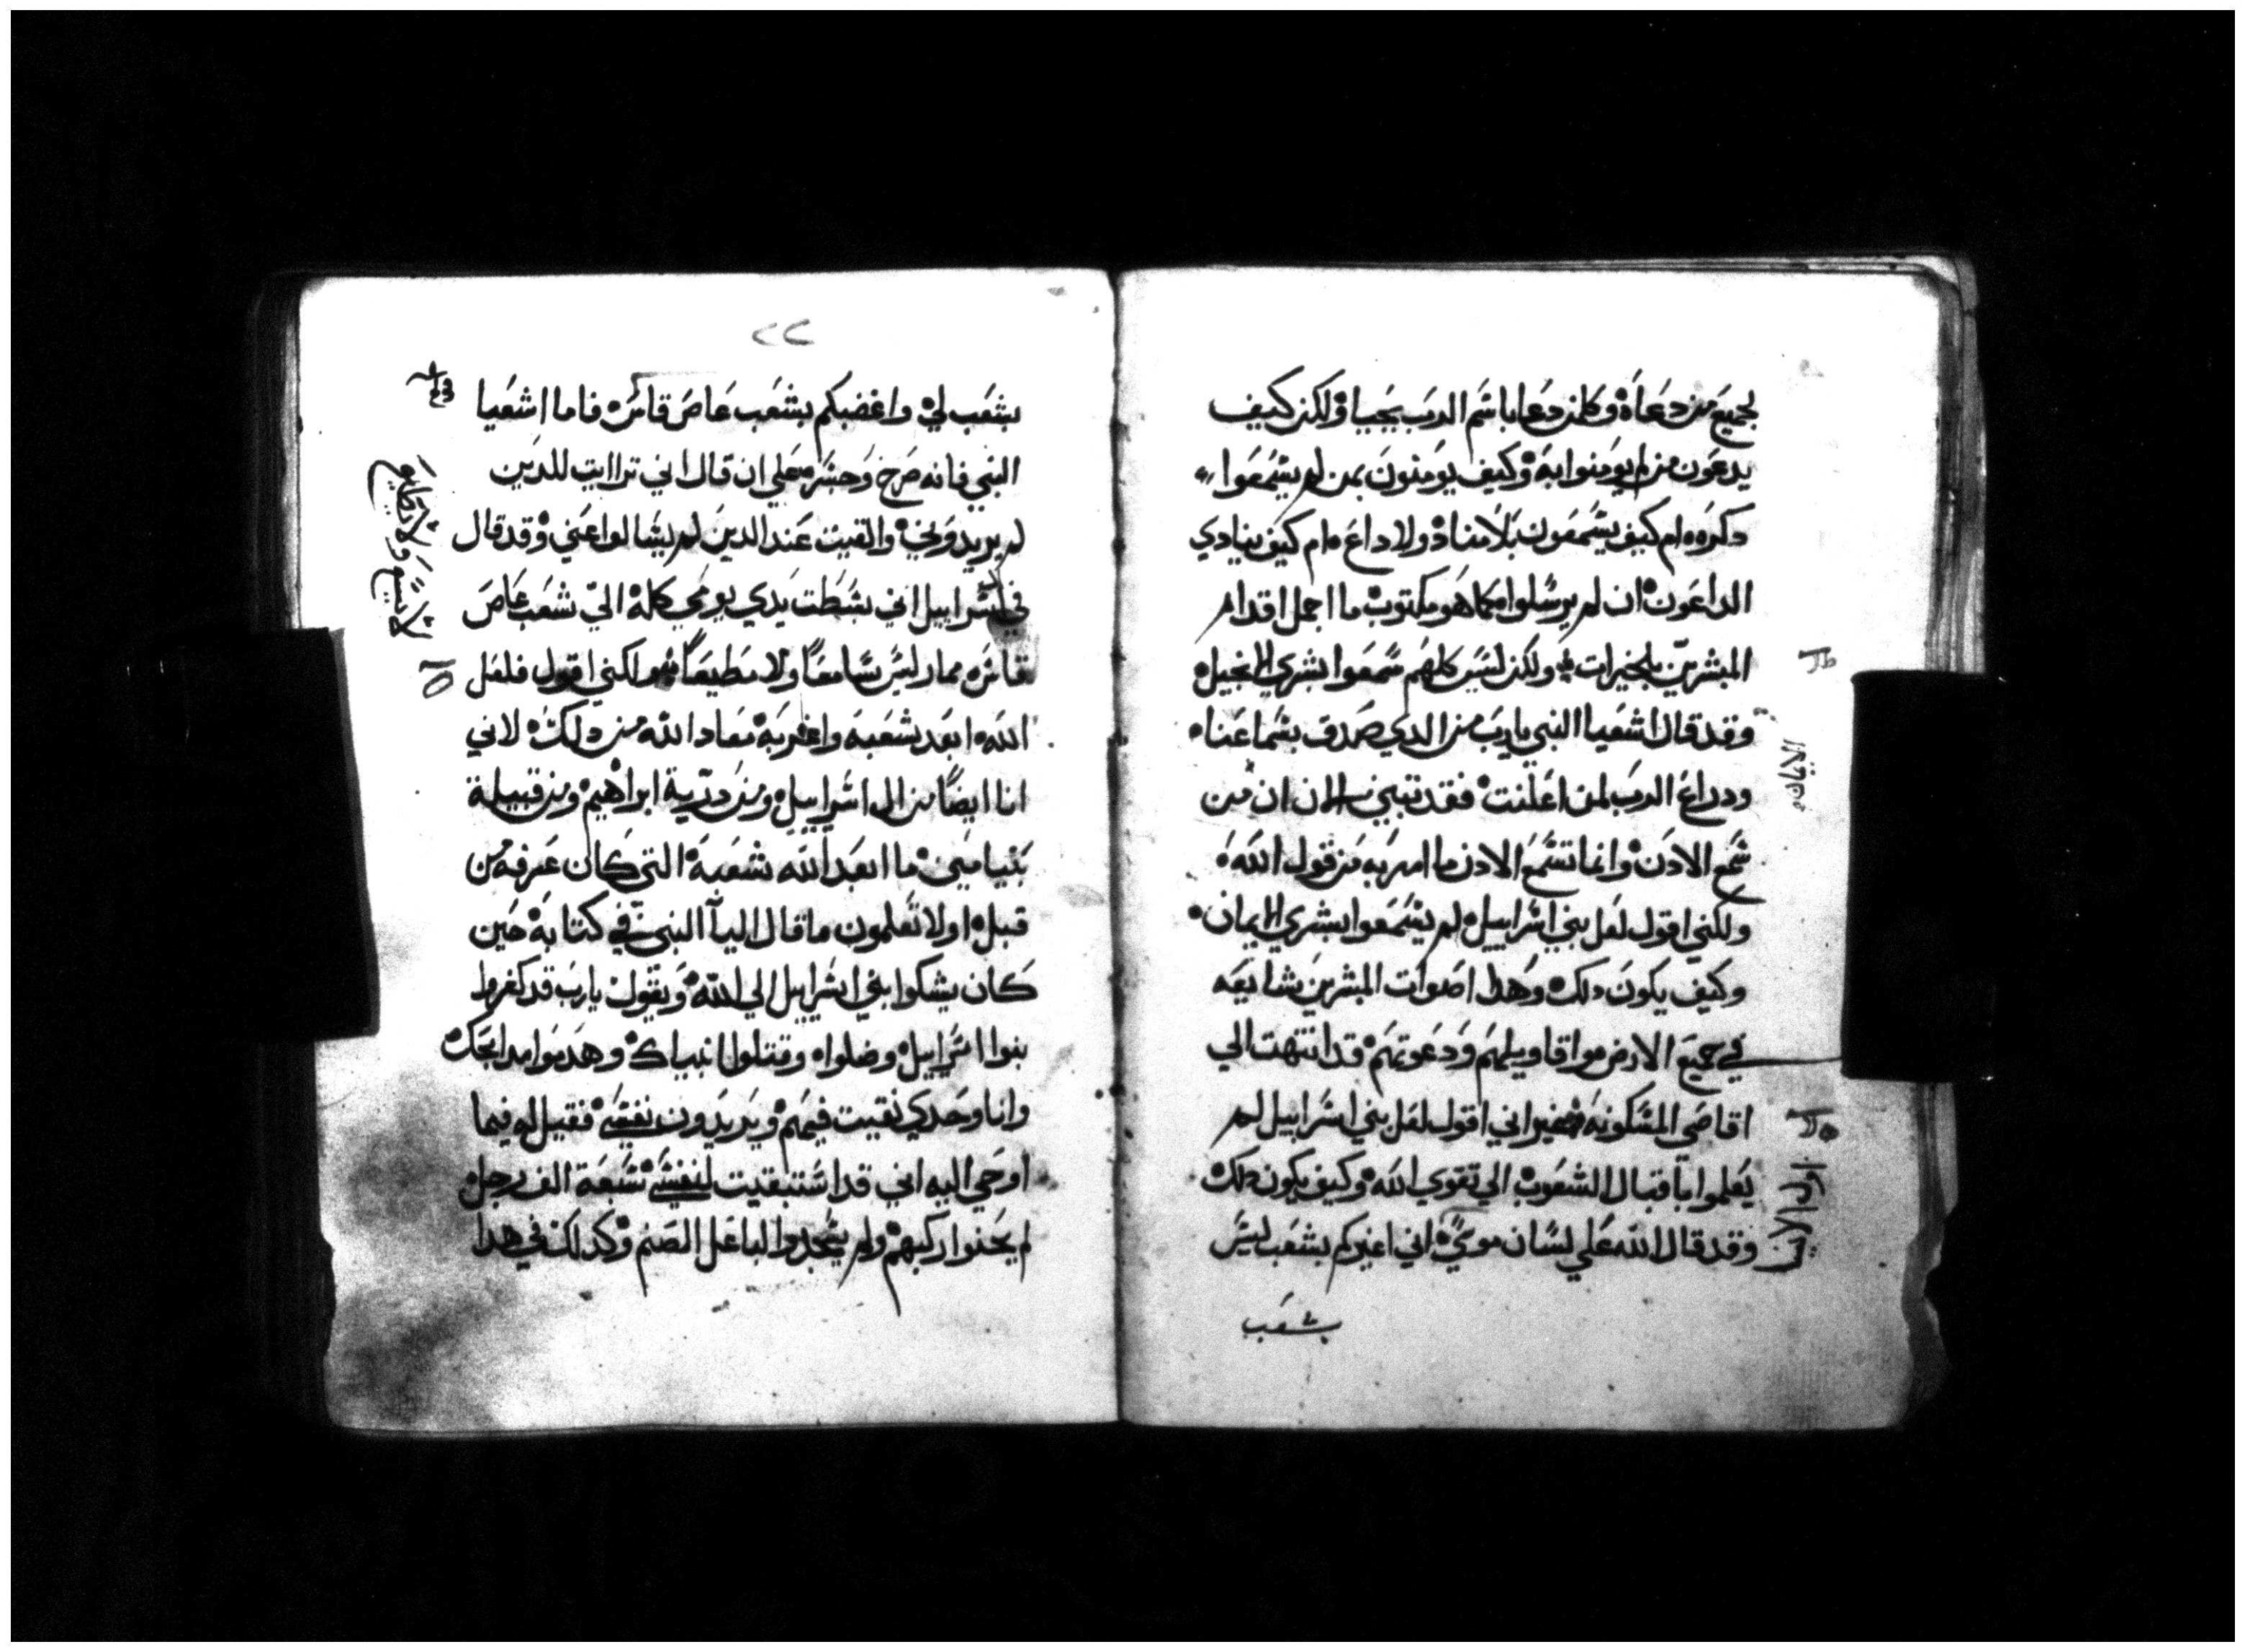 لجميع من دعاه وكلمن دعا باسم الرب يحيا ولكن كيف
يدعون من لم يومنوا به وكيف يومنون بمن لم يسمعوا
دكره ام كيف يسمعون بلا مناد ولا داع ام كيف ينادي
الداعون ان لم يرسلوا كما هو مكتوب ما اجمل اقدام
المبشرين بالخيرات ولكن ليس كلهم سمعوا بشري الانجيل
وقد قال اشعيا النبي يا رب من الدي صدق بسماعنا
ودراع الرب لمن اعلنت فقد تبين الان ان من
سمع الادن وانما تسمع الادن ما امر به من قول الله
ولكني اقول لعل بني اسراييل لم يسمعوا بشري الايمان
وكيف يكون دلك وهدا اصوات المبشرين شايعه
في جميع الارض واقاويلهم ودعوتهم قد انتهت الي
اقاصي المسكونه غير اني اقول لعل بني اسراييل لم
يعلموا باقبال الشعوب الي تقوي الله وكيف يكون دلك
وقد قال الله علي لسان موسي اني اغيركم بشعب ليس
بشعب
٢٢
بشعب لي واغضبكم بشعب عاص قاس فاما اشعيا
النبي فانه صرخ وجسر علي ان قال اني ترايت للدين
لم يريدوني والقيت عند الدين لم يسالوا عني وقد قال
في اسراييل اني بسطت يدي يومي كله الي شعب عاص
قاس ممار ليس سامعا ولا مطيعا ولكني اقول فلعل
الله ابعد شعبه واغربه معاد الله من دلك لاني
انا ايضا من ال اسراييل ومن درية ابراهيم ومن قبيلة
بنيامين ما ابعد الله شعبه التي كان عرفه من
قبل اولا تعلمون ما قال اليا النبي في كتابه حين
كان يشكوا بني اسراييل الي الله ويقول يا رب قد كفروا
بنوا اسراييل وضلوا وقتلوا انبياك وهدموا مدابحك
وانا وحدي بقيت فيهم ويريدون نفسي فقيل له فيما
اوحي اليه اني قد استبقيت لنفسي سبعة الف رجل
لم يحنوا ركبهم ولم يسجدوا لباعل الصنم وكدلك في هدا
لا سامع ولا مطيع